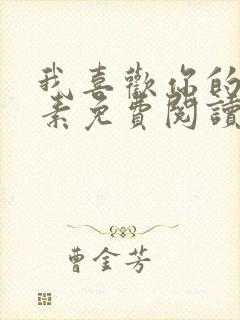 我喜歡你的
素免費閱讀
曹金芳